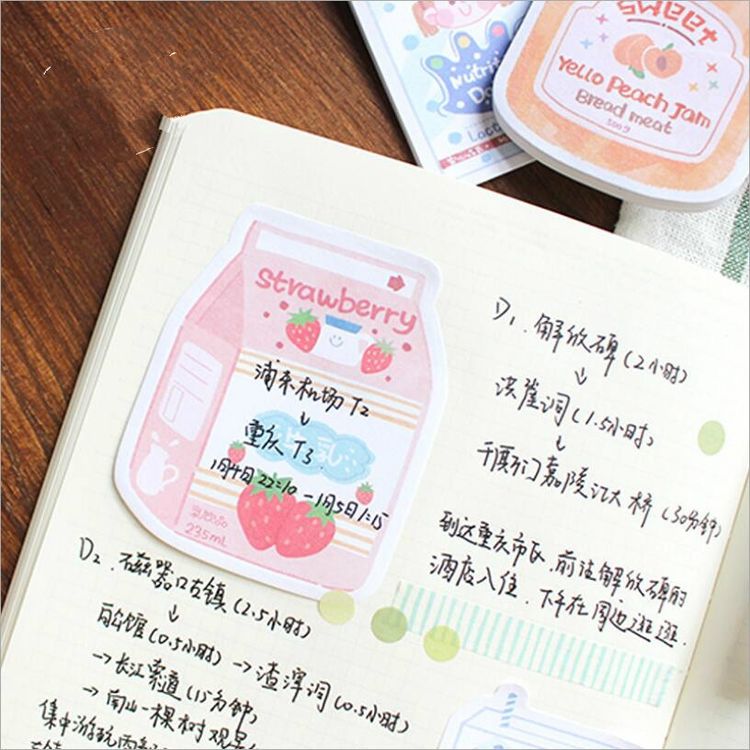 SWEET
Yello Peach Jam
Bread meat
500g
Nutrit
Strawberry
浦东机场 T2
↓
重庆 T3.
1月4日 22:10 - 1月5日 1:15
乳饮品
235mL
D1. 解放碑(2小时)
↓
洪崖洞(1.5小时)
↓
千厮门嘉陵江大桥(30分钟)
到达重庆市区,前往解放碑的
酒店入住.下午在周边逛逛.
D2.磁器口古镇(2.5小时)
↓
白公馆(0.5小时)→渣滓洞(0.5小时)
→长江索道(15分钟)
→南山一棵树观景
集中游玩两